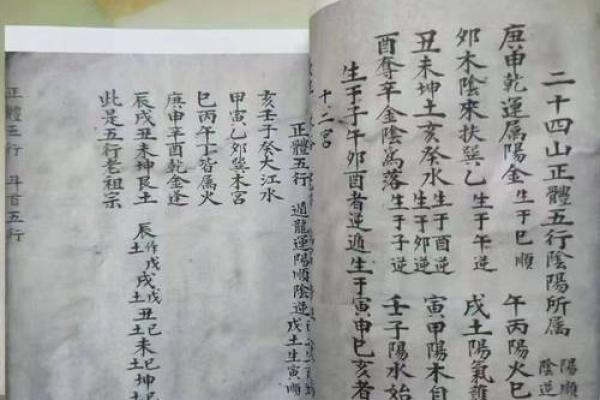 二十四山正體五行陰陽所属 陽順 陰逆
庚申乾運属陽金 生于巳順 午丙陽火巳
夘木陰來扶巽乙 生于午逆 戌土陽氣
丑未坤土亥癸水 生于酉逆 生于夘逆 寅甲陽木自
酉奪辛金陰篤落 生于子逆 壬子陽水始
生于子午夘酉者逆遁 生于寅申巳亥者
十二宮
正體五行 遁龍運陽順陰逆 戌土生寅順
亥壬子癸大江水
甲寅乙夘巽木宮
巳丙午丁皆属火
庚申辛酉乾金逢
辰戌丑未坤艮土 辰作戊土 戌戊土 丑己土 未己土 坤己
此是五行老祖宗
正體五行 斗首五行